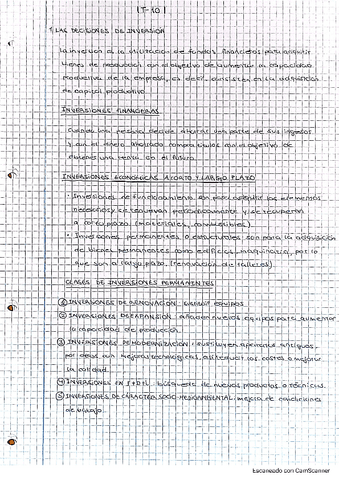 T-10
1. LAS DECISIONES DE INVERSIÓN
La inversión es la utilización de fondos financieros para adquirir
bienes de producción con el objetivo de aumentar la capacidad
productiva de la empresa, es decir, consiste en la adquisición
de capital productivo.
INVERSIONES FINANCIERAS
Cuando una persona decide ahorrar una parte de sus ingresos
y con el dinero ahorrado compra títulos con el objetivo de
obtener una renta en el futuro.
INVERSIONES ECONÓMICAS A CORTO Y LARGO PLAZO
· Inversiones de funcionamiento son para adquirir los elementos
necesarios y se renuevan periódicamente y se recuperan
a corto plazo (materiales, combustibles).
· Inversiones permanentes o estructurales son para la adquisición
de bienes permanentes como edificios, maquinaria, por lo
que son a largo plazo (renovación de talleres).
CLASES DE INVERSIONES PERMANENTES
① INVERSIONES DE RENOVACIÓN: equipos
② INVERSIONES DE EXPANSIÓN: añaden nuevos equipos para aumentar
la capacidad de producción.
③ INVERSIONES DE MODERNIZACIÓN: sustituyen aparatos antiguos
por otros con mejoras tecnológicas, así reducir los costes o mejorar
su calidad.
④ INVERSIONES EN I+D+I: búsqueda de nuevos productos o técnicas.
⑤ INVERSIONES DE CARÁCTER SOCIO-MEDIOAMBIENTAL: mejora de condiciones
de trabajo.
Escaneado con CamScanner